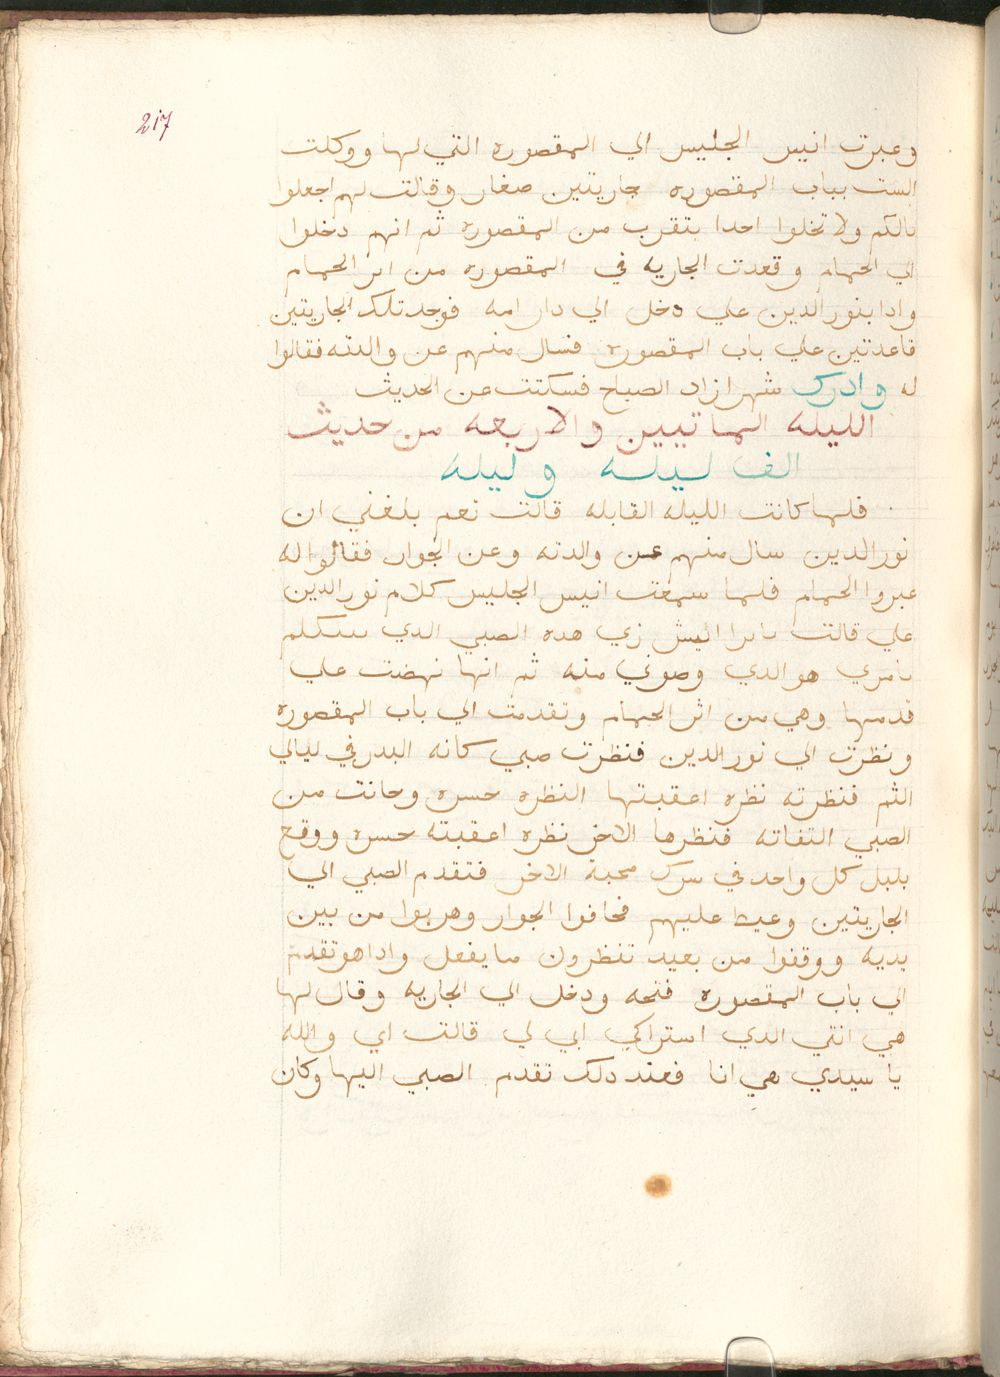 217
وعبرت انيس الجليس الي المقصوره التي لها ووكلت
الست بباب المقصوره جاريتين صغار وقالت لهم اجعلوا
بالكم ولا تخلوا احدا يتقرب من المقصوره ثم انهم دخلوا
الي الحمام وقعدت الجاريه في المقصوره من اثر الحمام
وادا بنور الدين علي دخل الي دار امه فوجد تلك الجاريتين
قاعدتين علي باب المقصوره فسال منهم عن والدته فقالوا
له وادرك شهرازاد الصباح فسكتت عن الحديث
الليله الماتيين والاربعه من حديث
الف ليله وليله
فلما كانت الليله القابله قالت نعم بلغني ان
نور الدين سال منهم عن والدته وعن الجوار فقالوا له
عبروا الحمام فلما سمعت انيس الجليس كلام نور الدين
علي قالت يا ترا اليش زي هده الصبي الدي يتكلم
يا تري هو الدي وصوني منه ثم انها نهضت علي
قدميها وهي من اثر الحمام وتقدمت الي باب المقصوره
ونظرت الي نور الدين فنظرت صبي كانه البدر في ليالي
التم فنظرته نظره اعقبتها النظره حسره وحانت من
الصبي التفاته فنظرها الاخر نظره اعقبته حسره ووقع
بلبل كل واحد في شرك محبة الاخر فتقدم الصبي الي
الجاريتين وعيط عليهم فخافوا الجوار وهربوا من بين
يديه ووقفوا من بعيد تنظرون ما يفعل وادا هو تقدم
الي باب المقصوره فتحه ودخل الي الجاريه وقال لها
هي انتي الدي استراكي ابي لي قالت اي والله
يا سيدي هي انا فعند دلك تقدم الصبي اليها وكان